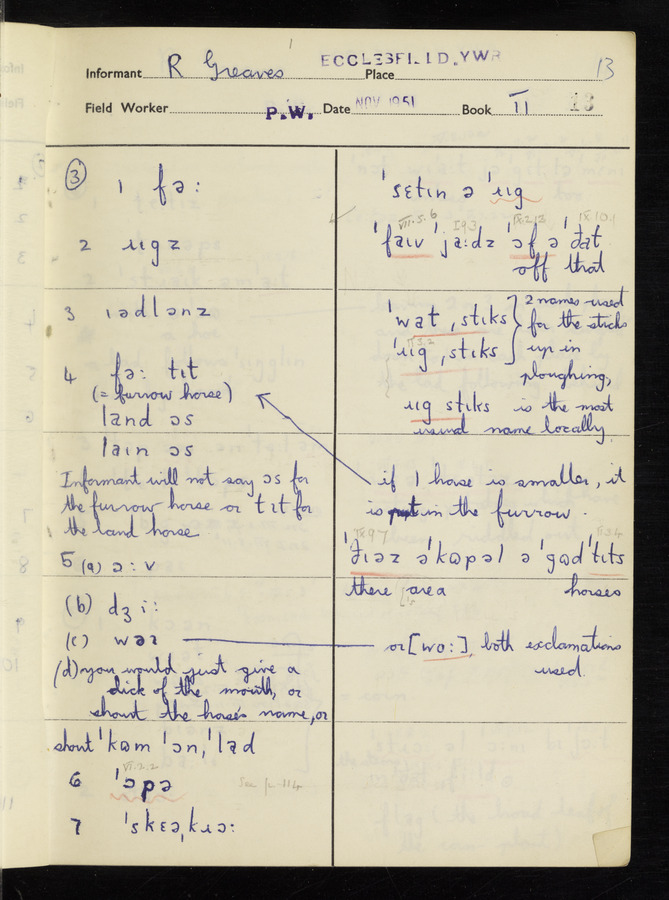 ECCLESFIELD, YWR
Informant R Greaves Place 13
Field Worker P.W. Date NOV 1951 Book II 13
③ 1 fə:
2 ɹɪgz
3 ɪədlənz
4 fə: tɪt
(= furrow horse)
land ɔs
laɪn ɔs
Informant will not say ɔs for
the furrow horse or tɪt for
the land horse
5 (a) ɔ: v
(b) dʒi:
(c) wəɪ
(d) you would just give a
click of the mouth, or
shout the horse's name, or
shout 'kɒm 'ɔn, 'lad
VI.2.2
6 'ɔpə See p. 114
7 'skɛəˌkɹɔ:
'sɛtɪn ə 'ɹɪg
VII.5.6 I.9.3 IX.2.13 IX.10.1
'faɪv 'ja:dz 'ɔf ə 'ðat
off that
'wat ˌstɪks } 2 names used
'ɹɪg ˌstɪks for the sticks
up in
ploughing,
ɹɪg stɪks is the most
usual name locally
if 1 horse is smaller, it
is put in the furrow.
IX.9.7 II.3.4
'ðɪəz ə'kɒpəl ə 'gɒd 'tɪts
there area horses
or [wo:], both exclamations
used.